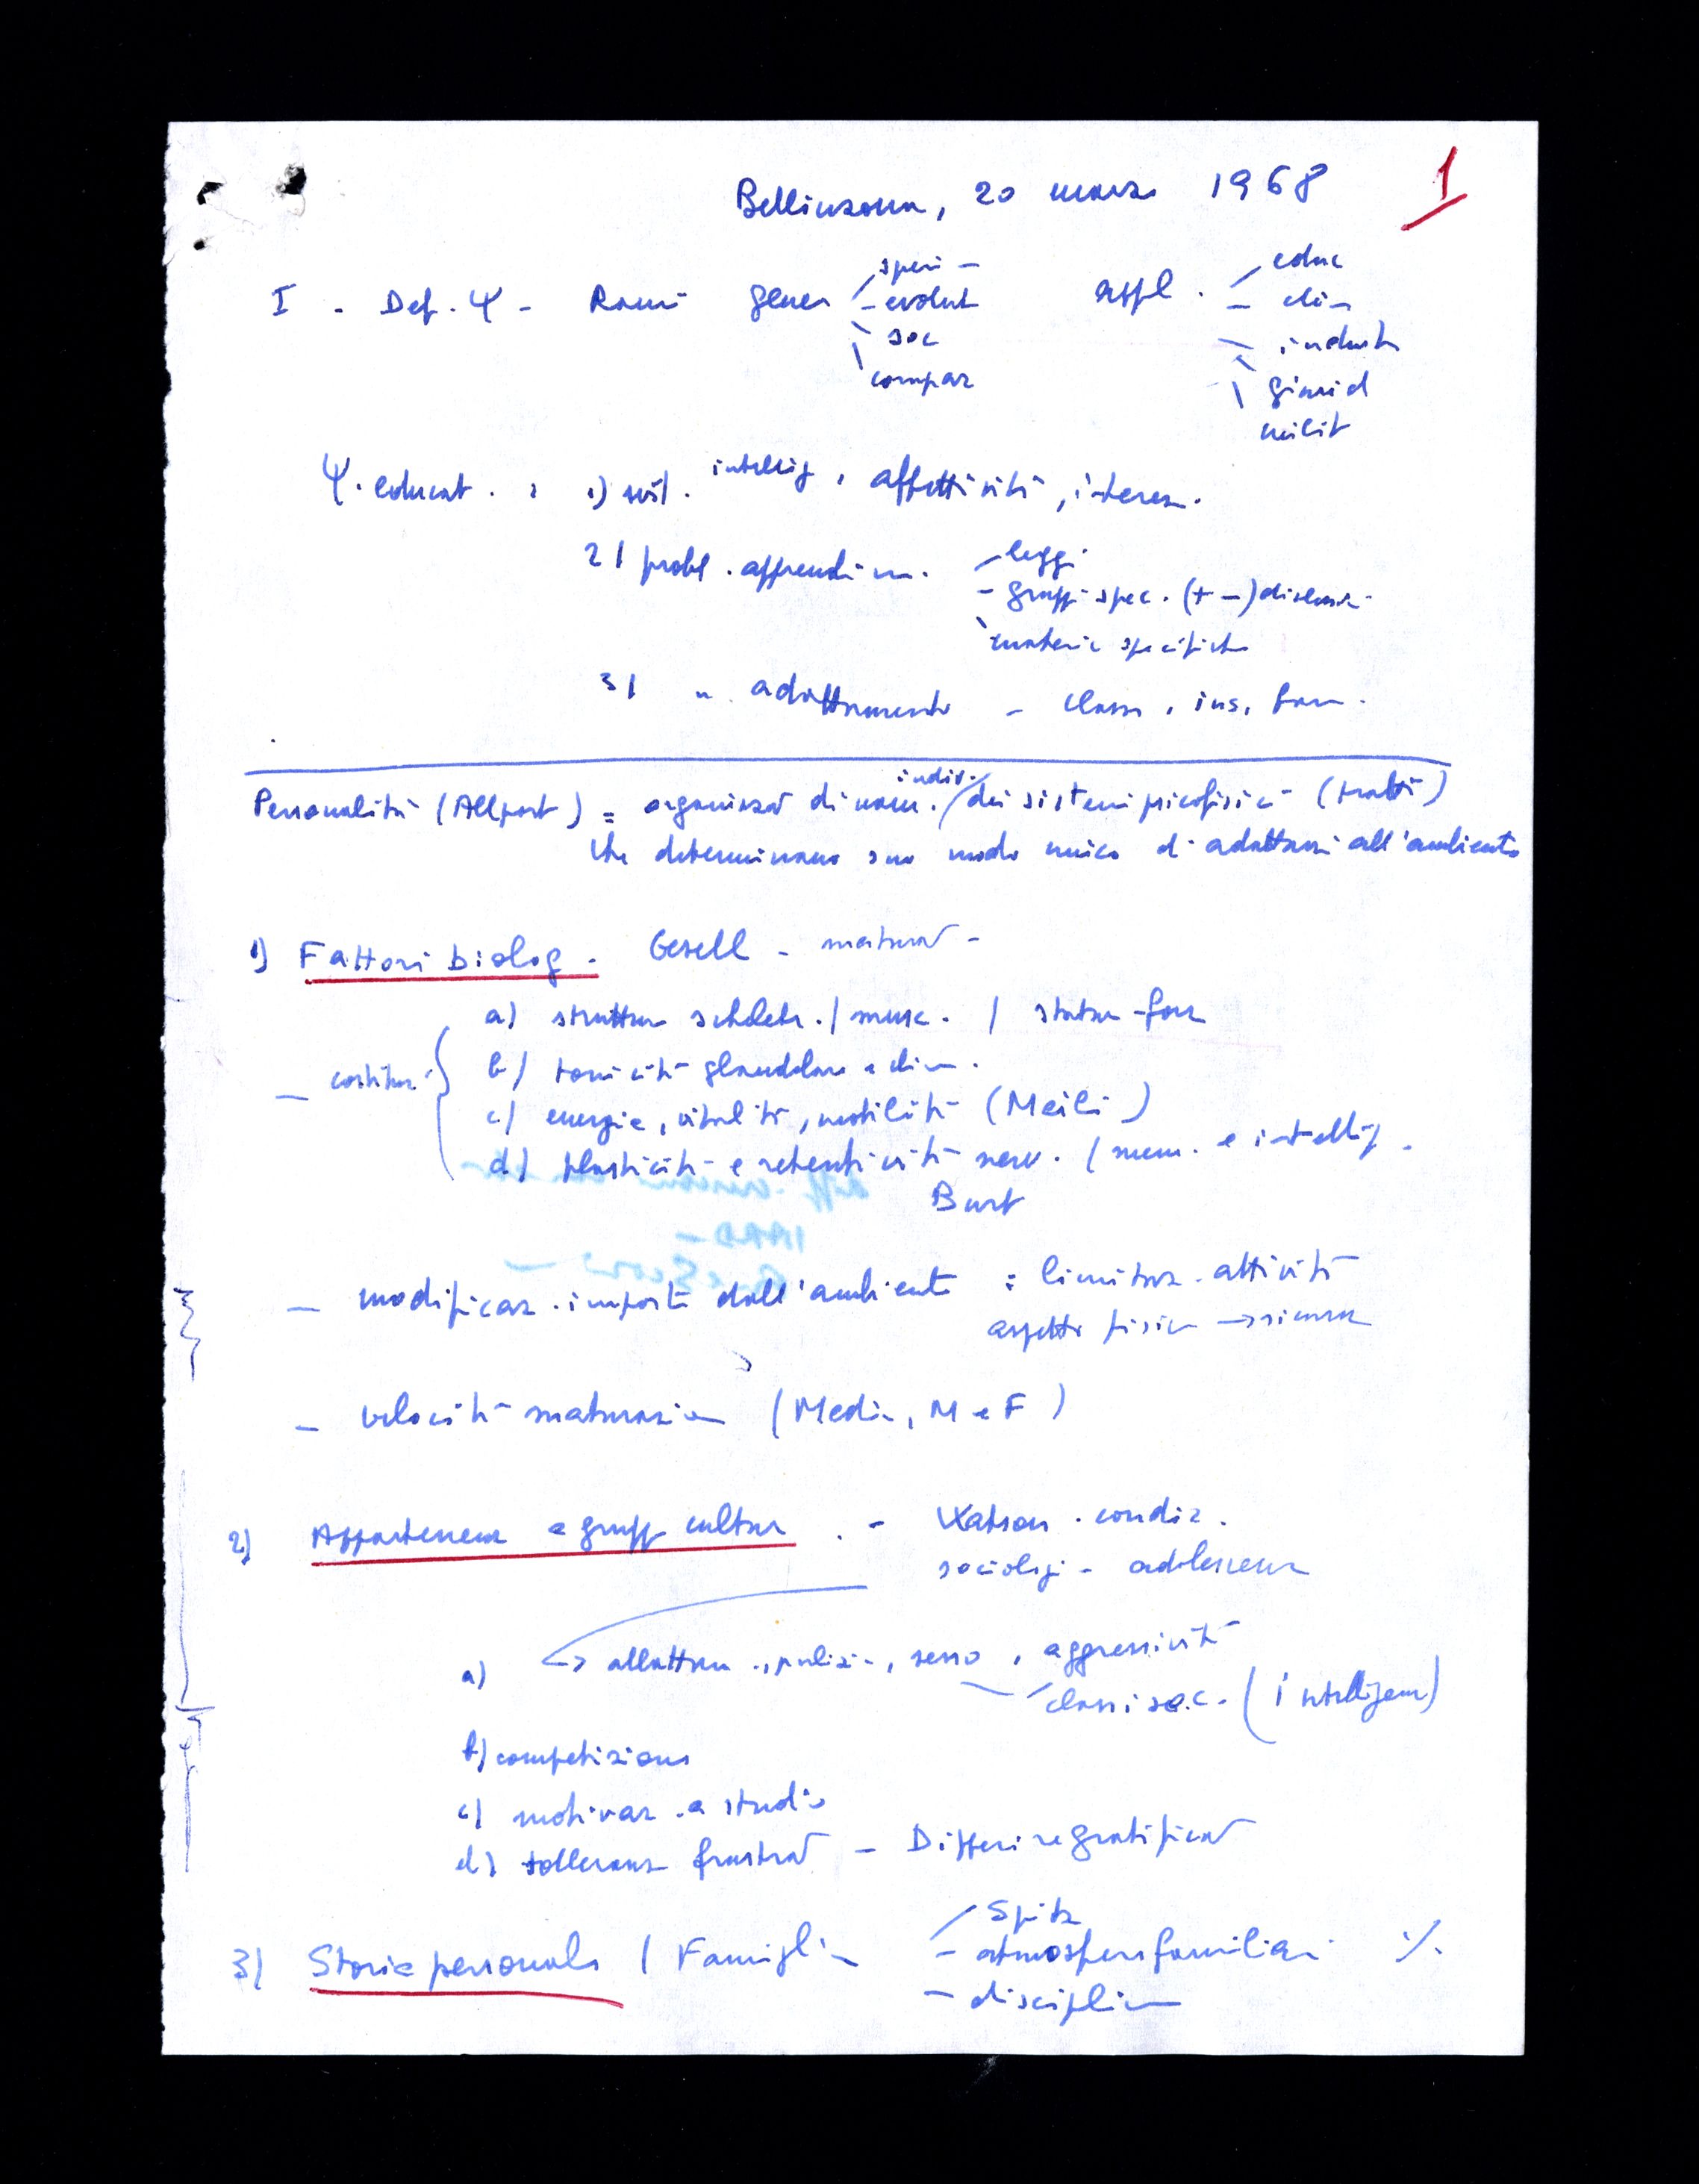 Bellinzona, 20 marzo 1968 1
I - Def. Ψ - Rami gener speri - appl. educ
evolut clin
soc industr
compar giurid
milit
Ψ. educat. : 1) svil. intellig, affettività, interess.
2) probl. apprendim. leggi
- gruppi spec. (+ -)
materie specifiche
3) " adattamento - classe, ins, fam.
Personalità (Allport) = organizzaz dinam. indiv. dei sistemi psicofisici (tratti)
che determinano suo modo unico di adattarsi all'ambiente
1) Fattori biolog. Gesell - maturaz -
a) struttura scheletr. / musc. / statura - forza
- costituz. b) tonicità glandolare e
c) energia, vitalità, motilità (Meili)
d) plasticità e retentività nerv. / mem. e intellig.
Burt
- modificaz. imposte dall'ambiente : limitaz. attività
aspetto fisico → sicurezza
- velocità maturazione (Media, M e F)
2) Appartenenza a gruppi culturali . - Watson . condiz.
sociologi - adolescenza
a) allattam., pulizia, sesso, aggressività
classi soc. (intelligenza)
b) competizione
c) motivaz. a studio
d) tolleranza frustraz - Differire gratificaz
3) Storia personale / Famiglia Spitz
- atmosfera familiare ./.
- disciplina